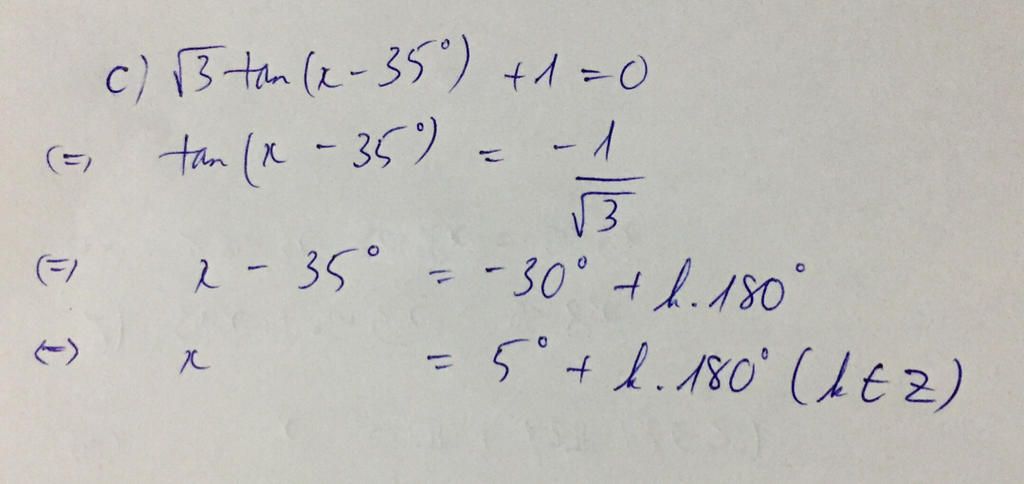 c) √3 tan(x - 35°) + 1 = 0
(=) tan(x - 35°) = -1/√3
(=) x - 35° = -30° + k.180°
(=) x = 5° + k.180° (k ∈ Z)